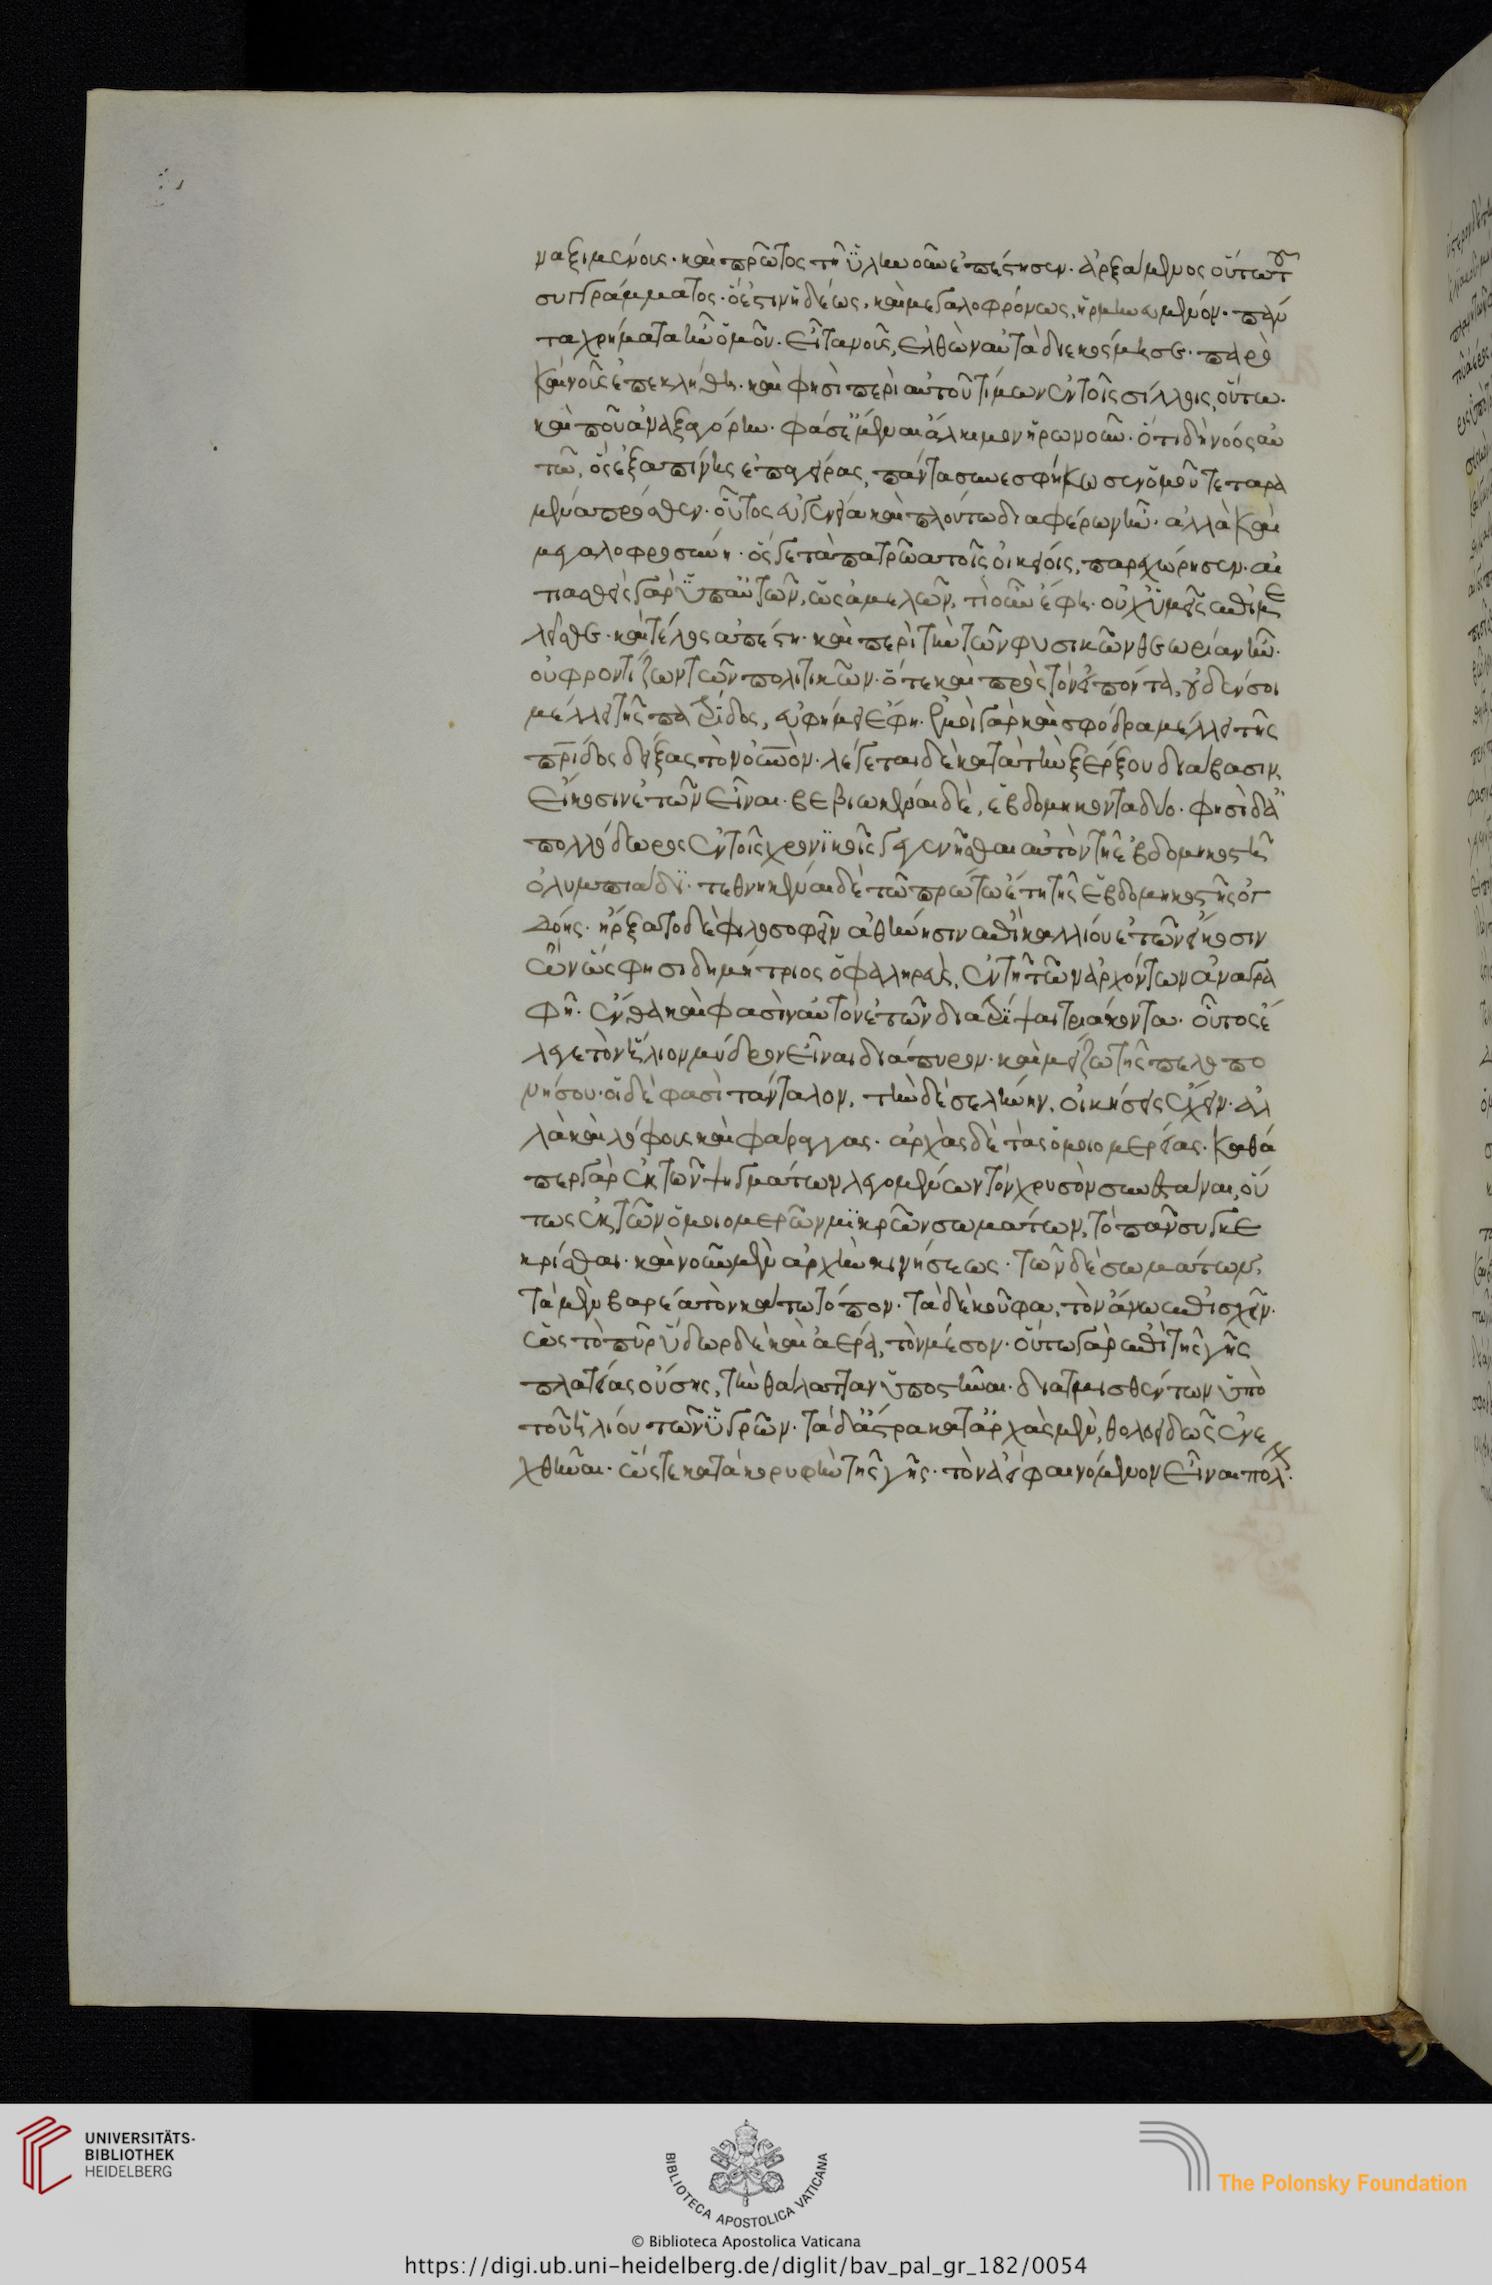 ναξιμένους· καὶ πρῶτος τῆ ὕλη νοῦν ἐπέστησεν· ἀρξάμενος οὕτω τοῦ
συγγράμματος· ὅ ἐστιν ἡδέως, καὶ μεγαλοφρόνως, ἡρμηνευμένον· πάν
τα χρήματα ἦν ὁμοῦ· εἶτα νοῦς, ἐλθὼν αὐτὰ διεκόσμησε· παρὸ
καὶ νοῦς ἐπεκλήθη· καὶ φησὶ περὶ αὐτοῦ τίμων ἐν τοῖς σίλλοις, οὕτω·
καὶ που ἀναξαγόρην· φάσ' ἔμμεναι ἄλκιμον ἥρω νοῦν· ὅτι δὴ νοός αὐ
τῶ, ὃς ἐξαπίνης ἐπεγείρας, πάντα συνεσφήκωσεν ὁμοῦ τεταρα
μένα πρόσθεν· οὗτος εὐγενεία καὶ πλούτω διαφέρων ἦν· ἀλλὰ καὶ
μεγαλοφροσύνη· ὅς γε τὰ πατρῶα τοῖς οἰκείοις, παρεχώρησεν· αἰ
τιαθεὶς γὰρ ὑπ' αὐτῶν, ὡς ἀμελῶν, τί οὖν ἔφη· οὐχ ὑμεῖς ἐπιμε
λεῖσθε· καὶ τέλος ἀπέστη· καὶ περὶ τὴν τῶν φυσικῶν θεωρίαν ἦν·
οὐ φροντίζων τῶν πολιτικῶν· ὅτε καὶ πρὸς τὸν εἰπόντα, οὐδέν σοι
μέλλει τῆς πατρίδος, εὐφήμει ἔφη· ἐμοὶ γὰρ καὶ σφόδρα μέλλει τῆς
πρίδος δείξας τὸν οὐνὸν· λέγεται δὲ κατὰ τὴν ξέρξου διάβασιν,
εἴκοσιν ἐτῶν εἶναι· βεβιωκέναι δὲ, ἑβδομήκοντα δύο· φησὶ δ' ἀ
πολλόδωρος ἐν τοῖς χρονικοῖς γεγενῆσθαι αὐτὸν τῆ ἑβδομηκοστῆ
ὀλυμπιάδι· τεθνηκέναι δὲ τῶ πρώτω ἔτη τῆς ἑβδομηκοστῆς ὀγ
δόης· ἤρξατο δὲ φιλοσοφεῖν ἀθήνησιν ἐπὶ καλλίου ἐτῶν εἴκοσιν
ὢν ὥς φησι δημήτριος ὁ φαληρεὺς, ἐν τῆ τῶν ἀρχόντων ἀναγρα
φῆ· ἔνθα καὶ φασὶν αὐτὸν ἐτῶν διατρίψαι τριάκοντα· οὗτος ἔ
λεγε τὸν ἥλιον μύδρον εἶναι διάπυρον· καὶ μείζω τῆς πελοπο
νήσου· οἱ δὲ φασὶ τάνταλον, τὴν δὲ σελήνην, οἰκήσεις ἔχειν· ἀλ
λὰ καὶ λόφους καὶ φάραγγας· ἀρχὰς δὲ τὰς ὁμοιομερείας· καθά
περ γὰρ ἐκ τῶν ψηγμάτων λεγομένων τὸν χρυσὸν συνεστάναι, οὕ
τως ἐκ τῶν ὁμοιομερῶν μικρῶν σωμάτων, τὸ πᾶν συγκε
κρίσθαι· καὶ νοῦν μὲν ἀρχὴν κινήσεως· τῶν δὲ σωμάτων,
τὰ μὲν βαρέα τὸν κάτω τόπον· τὰ δὲ κοῦφα, τὸν ἄνω ἐπισχεῖν·
ὡς τὸ πῦρ ὕδωρ δὲ καὶ ἀέρα, τὸν μέσον· οὕτω γὰρ ἐπὶ τῆς γῆς
πλατείας οὔσης, τὴν θάλατταν ὑποστῆναι· διατμισθέντων ὑπὸ
τοῦ ἡλίου τῶν ὑγρῶν· τὰ δ' ἄστρα κατ' ἀρχὰς μὲν, θολοειδῶς ἐνε
χθῆναι· ὥστε κατὰ κορυφὴν τῆς γῆς· τὸν ἀεὶ φαινόμενον εἶναι πόλ·
UNIVERSITÄTS-
BIBLIOTHEK
HEIDELBERG
BIBLIOTECA APOSTOLICA VATICANA
The Polonsky Foundation
© Biblioteca Apostolica Vaticana
https://digi.ub.uni-heidelberg.de/diglit/bav_pal_gr_182/0054